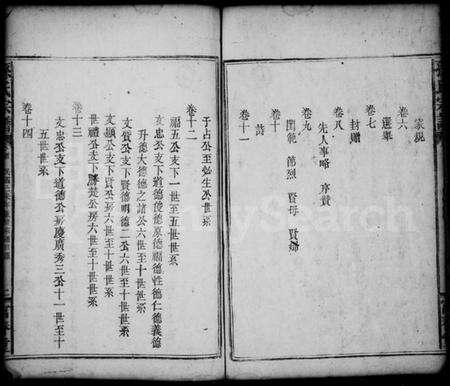 家規
卷六
選舉
卷七
封贈
卷八
先人事略 序贊
卷九
閨範 節烈 賢母 賢婦
卷十
詩
卷十一
于占公至必生公世系
卷十二
福五公支下一世至五世世系
文忠公支下道德俊德原德順德性德仁德義德
升德大德德之諸公六世至十世世系
文質公支下賢德明德二公六世至十世世系
文顯公支下賢公房六世至十世世系
世禮公支下勝楚公房六世至十世世系
卷十三
文忠公支下道德公房慶廣秀三公十一世至十
五世世系
卷十四